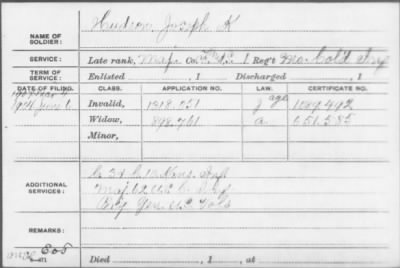 NAME OF SOLDIER: Hudson, Joseph K
SERVICE: Late rank, Maj. Co. F&S, 1 Reg't Mo. Cold Inf
TERM OF SERVICE: Enlisted , 1 Discharged , 1
DATE OF FILING. CLASS. APPLICATION NO. LAW. CERTIFICATE NO.
1907 Mar 4 Invalid, 1918.051 age 1089.492
June 6 Widow, 898.761 a. 651.585
Minor,
ADDITIONAL SERVICES:
C. 10 Kans. Inf
Maj. 62 U.S.C. Inf
Brig. Gen. U.S. Vols
REMARKS:
Died , 1 , at